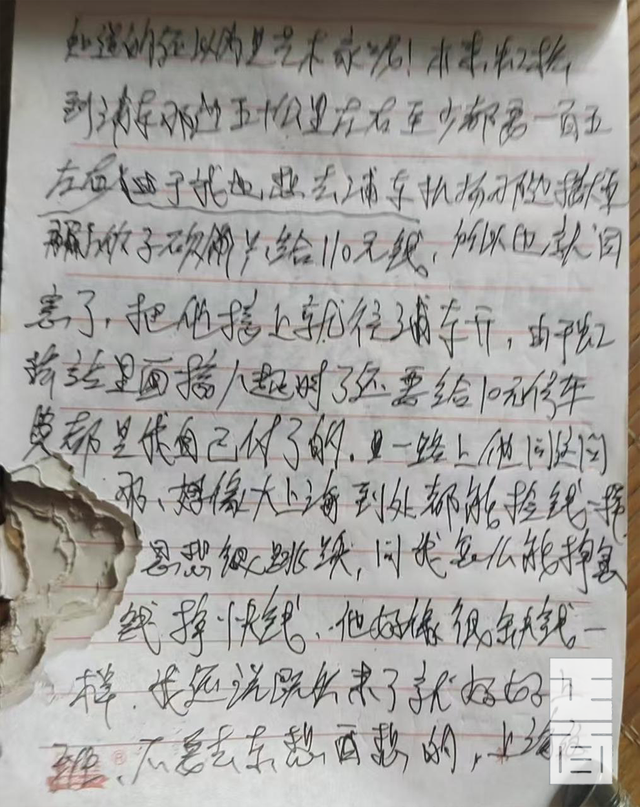 知道的还以为是艺术家呢！本来虹桥
到浦东那边五十公里左右至少都要一百五
左右，我也想去浦东机场那边
给110元钱，所以也就同
意了，把他接上就往浦东开，由于虹
桥站里面接人超时了还要给10元停车
费都是我自己付了的，且一路上他问这问
那，想像大上海到处都能捡钱一样
思想很跳跃，问我怎么能挣多
钱挣快钱，他好像很缺钱一
样，我还说既然来了就好好上
班，不要去东想西想的，上海